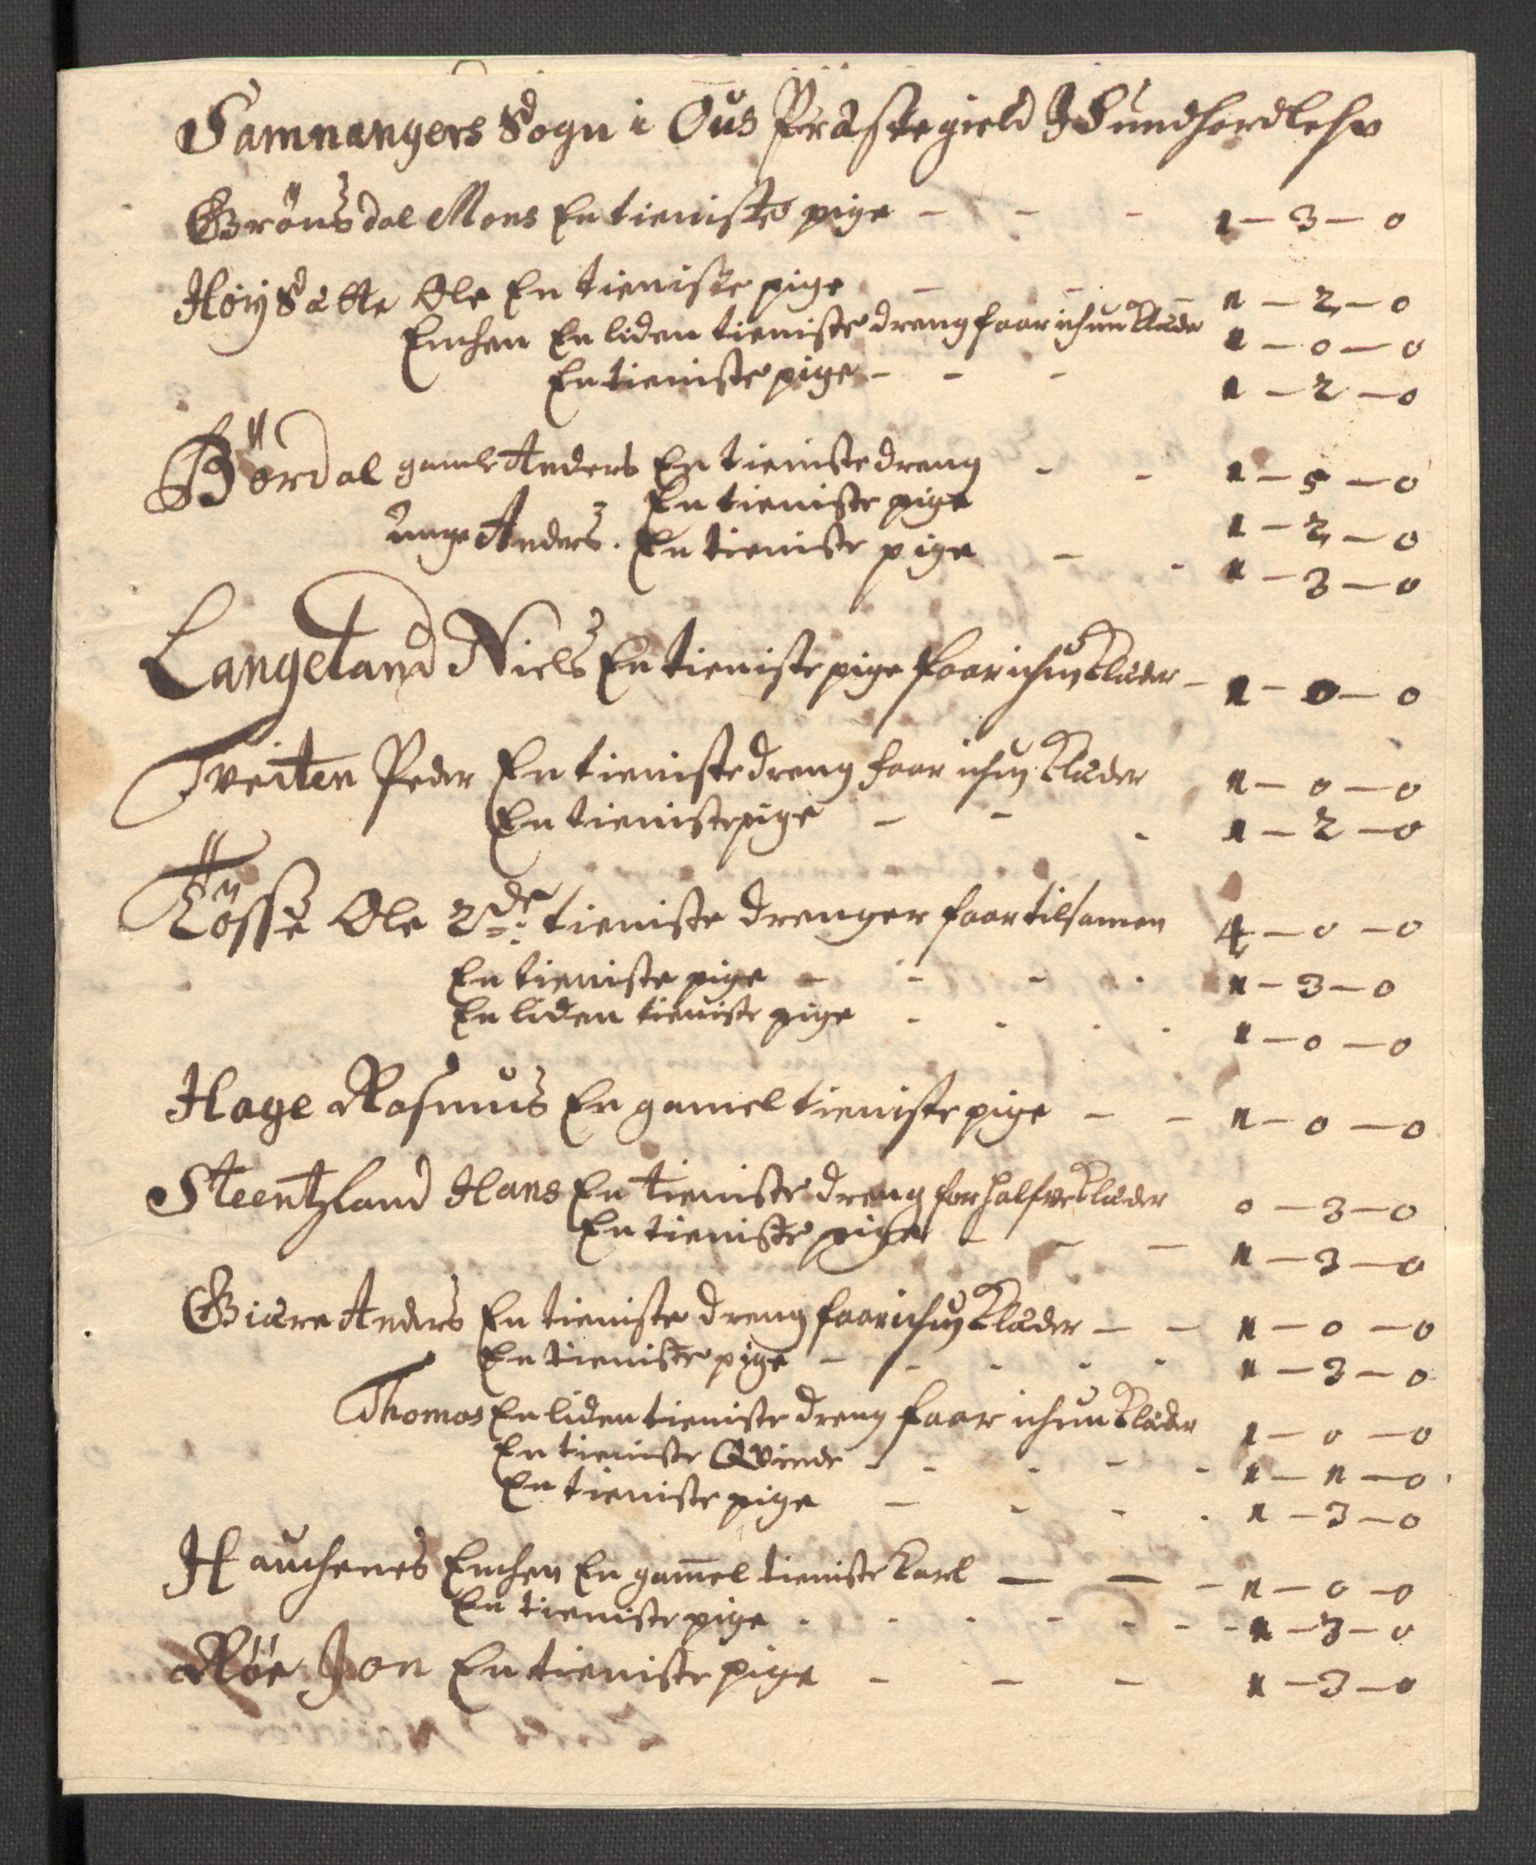 Samnangers Sogn i Ous Præstegield J Sundhordlehn
Grönsdal Mons En tieniste pige - - - 1 - 3 - 0
Höysætte Ole En tieniste pige - - - 1 - 2 - 0
Enchen En liden tieniste dreng faar ichun Klæder 1 - 0 - 0
En tieniste pige - - - 1 - 2 - 0
Bördal gamle Anders En tieniste dreng - - 1 - 5 - 0
En tieniste pige 1 - 2 - 0
unge Anders. En tieniste pige - - 1 - 3 - 0
Langeland Niels En tieniste pige faar ichun Klæder - 1 - 0 - 0
Tveiten Peder En tieniste dreng faar ichun Klæder 1 - 0 - 0
En tieniste pige - - - 1 - 2 - 0
Tösse Ole 2de tieniste drenger faar tilsamen 4 - 0 - 0
En tieniste pige - - - - 1 - 3 - 0
En liden tieniste pige - - - - 1 - 0 - 0
Hage Rasmus En gamel tieniste pige - - 1 - 0 - 0
Steentzland Hans En tieniste dreng for halfve Klæder 0 - 3 - 0
En tieniste pige - - - 1 - 3 - 0
Giære Anders En tieniste dreng faar ichun Klæder - - 1 - 0 - 0
En tieniste pige - - - - - 1 - 3 - 0
Thomas En liden tieniste dreng faar ichun Klæder 1 - 0 - 0
En tieniste Qvinde - - - - - 1 - 1 - 0
En tieniste pige - - - - 1 - 3 - 0
Hauchenes Enchen En gam̄el tieniste Karl - - - 1 - 0 - 0
En tieniste pige - - - - - - - 1 - 3 - 0
Röe Jon En tieniste pige - - - 1 - 3 - 0